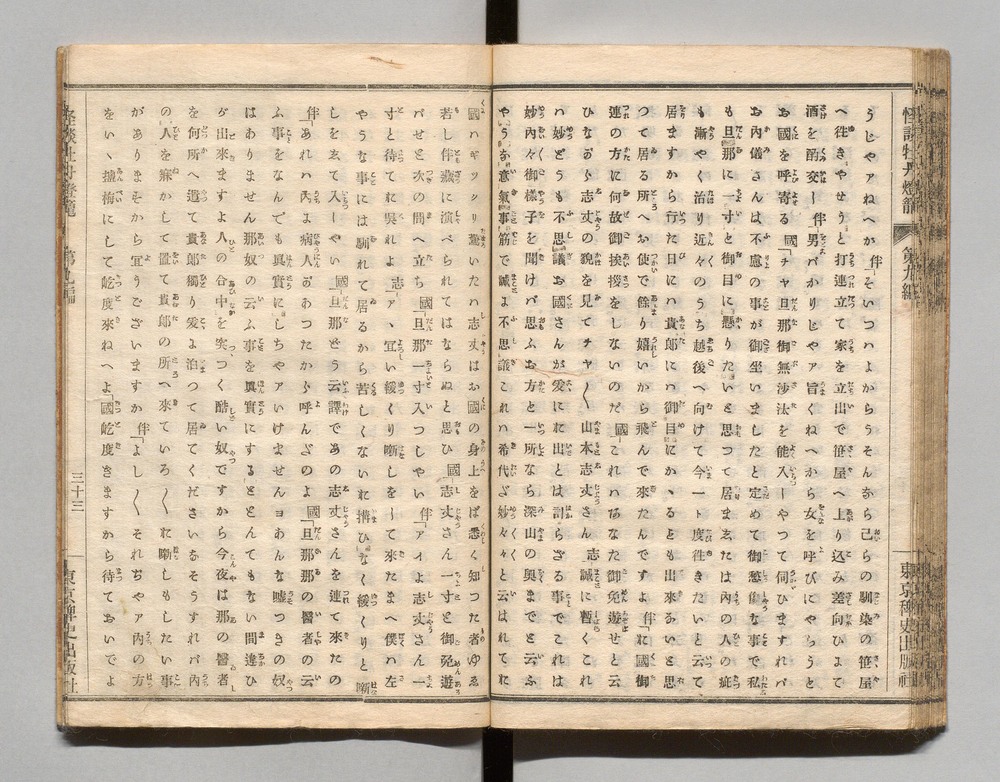 怪談牡丹燈籠
第九編
東京稗史出版社
うじやアねへか伴「そいつハよからうそんなら己らの馴染の笹屋
へ往きやせうと打連立て家を立出で笹屋へ上り込み差向ひよて
酒を酌交し伴「男バかりじやア旨くねへから女を呼びにやらうと
お國を呼寄る國「チヤ旦那御無沙汰を能入しやつて伺ひますれバ
お内儀さんは不慮の事が御坐いましたと定めて御愁傷な事で私
も旦那に一寸と御目に懸りたいと思つて居ま𛁈たは内の人の疵
も漸やく治り近々のうち越後へ向けて今一ト度往きたいと思つて
居ますから行た日にハ貴郎にハ御目にかゝるとも出來るいと思
つて居る所へお使で餘り嬉いから飛んで來たんですよ伴「に國御
連の方に何故御挨拶をしないのだ國「これハあなた御免遊せと云
ひながら志丈の貌を見てチヤ〳〵山本志丈さん志「誠に暫くこれ
ハ妙どうも不思議お國さんが爰にお出とは計らざる事でこれは
妙内々御樣子を聞けバ思ふお方と一所なら深山の奥までとゞふ
やうな意氣事筋で誠よ不思議これハ希代だ妙々々と云はれてに
國ハギツクリ驚いたハ志丈はお國の身上をば悉く知つた者ゆゑ
若し伴藏に演べられてはならぬと思ひ國「志丈さん一寸と御免遊
バせと次の間へ立ち國「旦那一寸入つしやい伴「アイよ志丈さん一
寸と待てに呉れよ志「アヽ宜い緩くり噺しをして來たまへ僕ハ左
やうな事には馴れて居るから苦しくないに搆ひなく緩くりと噺
しを𛁈て入しやい國「旦那どう云譯であの志丈さんを連て來たの
伴「あれハ内ょ病人があつたから呼んだのよ國「旦那那の醫者の云
ふ事をなんでも眞實にしちやアいけませんヨあんな嘘つきの奴
はありません那奴の云ふ事を眞實にするととんでもない間違ひ
が出來ますよ人の合中を突つく酷い奴ですから今夜は那の醫者
を何所へ遣て貴郎獨り爰よ泊つて居てくださいなそうすれバ内
の人を寐かして置て貴郎の所へ來ていろ〳〵に噺しもしたい事
がありますから宜うございますか伴「よし〳〵それぢやア内の方
をいゝ塩梅にして乾度來ねへよ「國乾度きますから待ておいでよ
怪談牡丹燈籠
第九編
三十三
東京稗史出版社